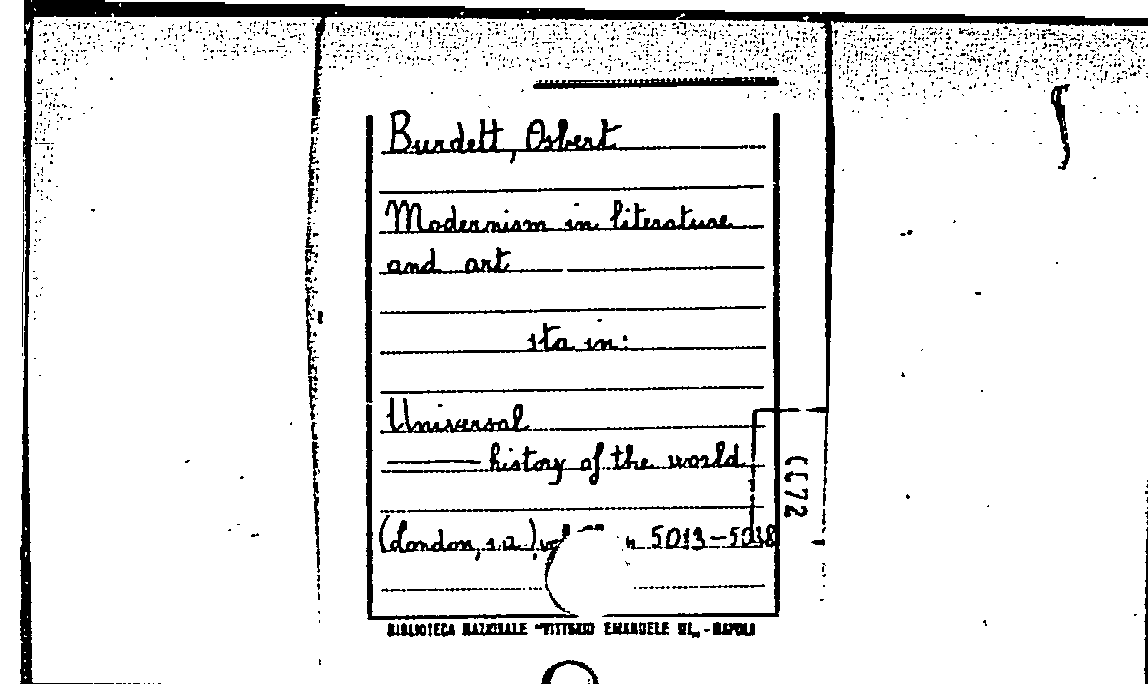 Burdett, Osbert
Modernism in literature
and art
sta in:
Universal
history of the world
(London, s.a.) 5013-5018
BIBLIOTECA NAZIONALE "VITTORIO EMANUELE III„ - NAPOLI